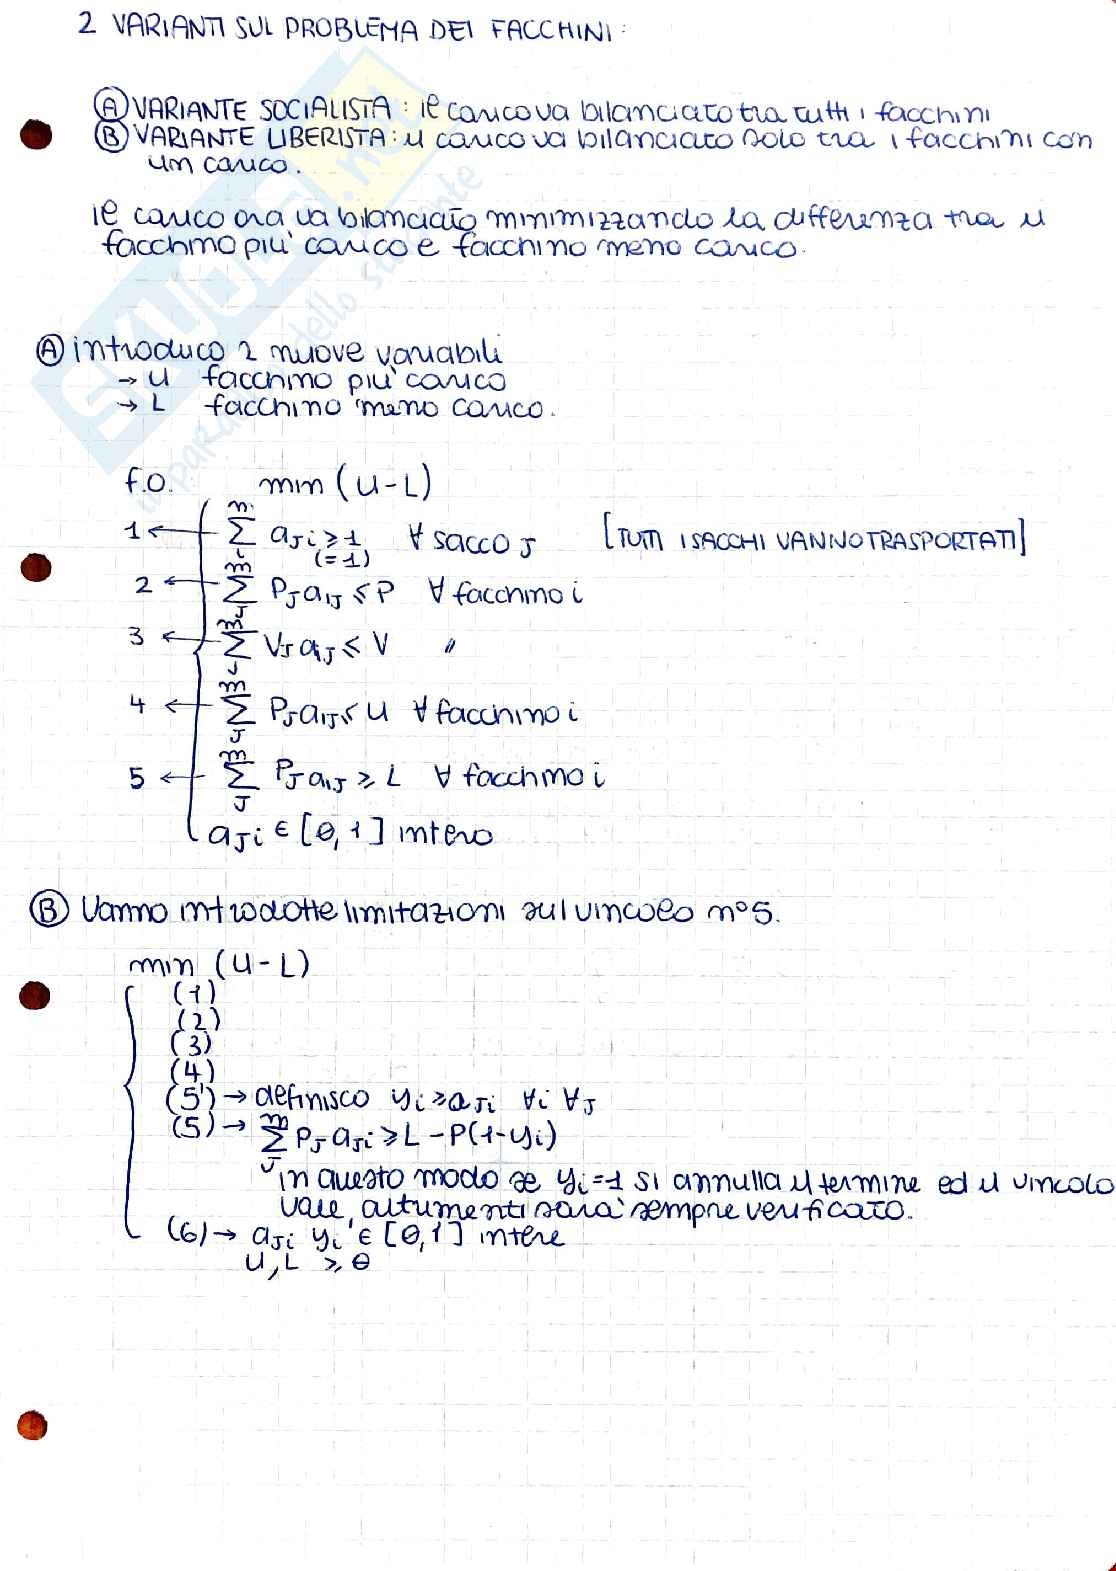 2 VARIANTI SUL PROBLEMA DEI FACCHINI:
Ⓐ VARIANTE SOCIALISTA: il carico va bilanciato tra tutti i facchini
Ⓑ VARIANTE LIBERISTA: il carico va bilanciato solo tra i facchini con
un carico.
il carico ora va bilanciato minimizzando la differenza tra il
facchino più carico e facchino meno carico.
Ⓐ introduco 2 nuove variabili
→ U facchino più carico
→ L facchino meno carico.
f.o. min (U-L)
1 ← ∑ⁿᵢ aⱼᵢ ≥ 1 ∀ sacco J [TUTTI I SACCHI VANNO TRASPORTATI]
(=1)
2 ← ∑ᵐⱼ Pⱼ aᵢⱼ ≤ P ∀ facchino i
3 ← ∑ᵐⱼ Vⱼ aᵢⱼ ≤ V "
4 ← ∑ᵐⱼ Pⱼ aᵢⱼ ≤ U ∀ facchino i
5 ← ∑ᵐⱼ Pⱼ aᵢⱼ ≥ L ∀ facchino i
aⱼᵢ ∈ [0,1] intero
Ⓑ Vanno introdotte limitazioni sul vincolo n°5.
min (U-L)
(1)
(2)
(3)
(4)
(5') → definisco yᵢ ≥ aⱼᵢ ∀i ∀J
(5) → ∑ᵐⱼ Pⱼ aⱼᵢ ≥ L - P(1-yᵢ)
in questo modo se yᵢ=1 si annulla il termine ed il vincolo
vale, altrimenti sarà sempre verificato.
(6) → aⱼᵢ yᵢ ∈ [0,1] intere
U, L ≥ 0
SKUOLA.net
il paradiso dello studente